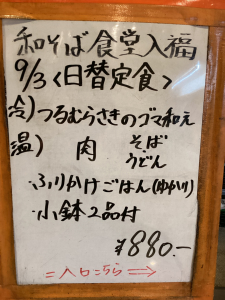 和そば食堂入福
9/3<日替定食>
冷)つるむらさきのゴマ和え
温) 肉 そば
うどん
・ふりかけごはん(ゆかり)
・小鉢2品付
¥880.-
=入口こちら⇒